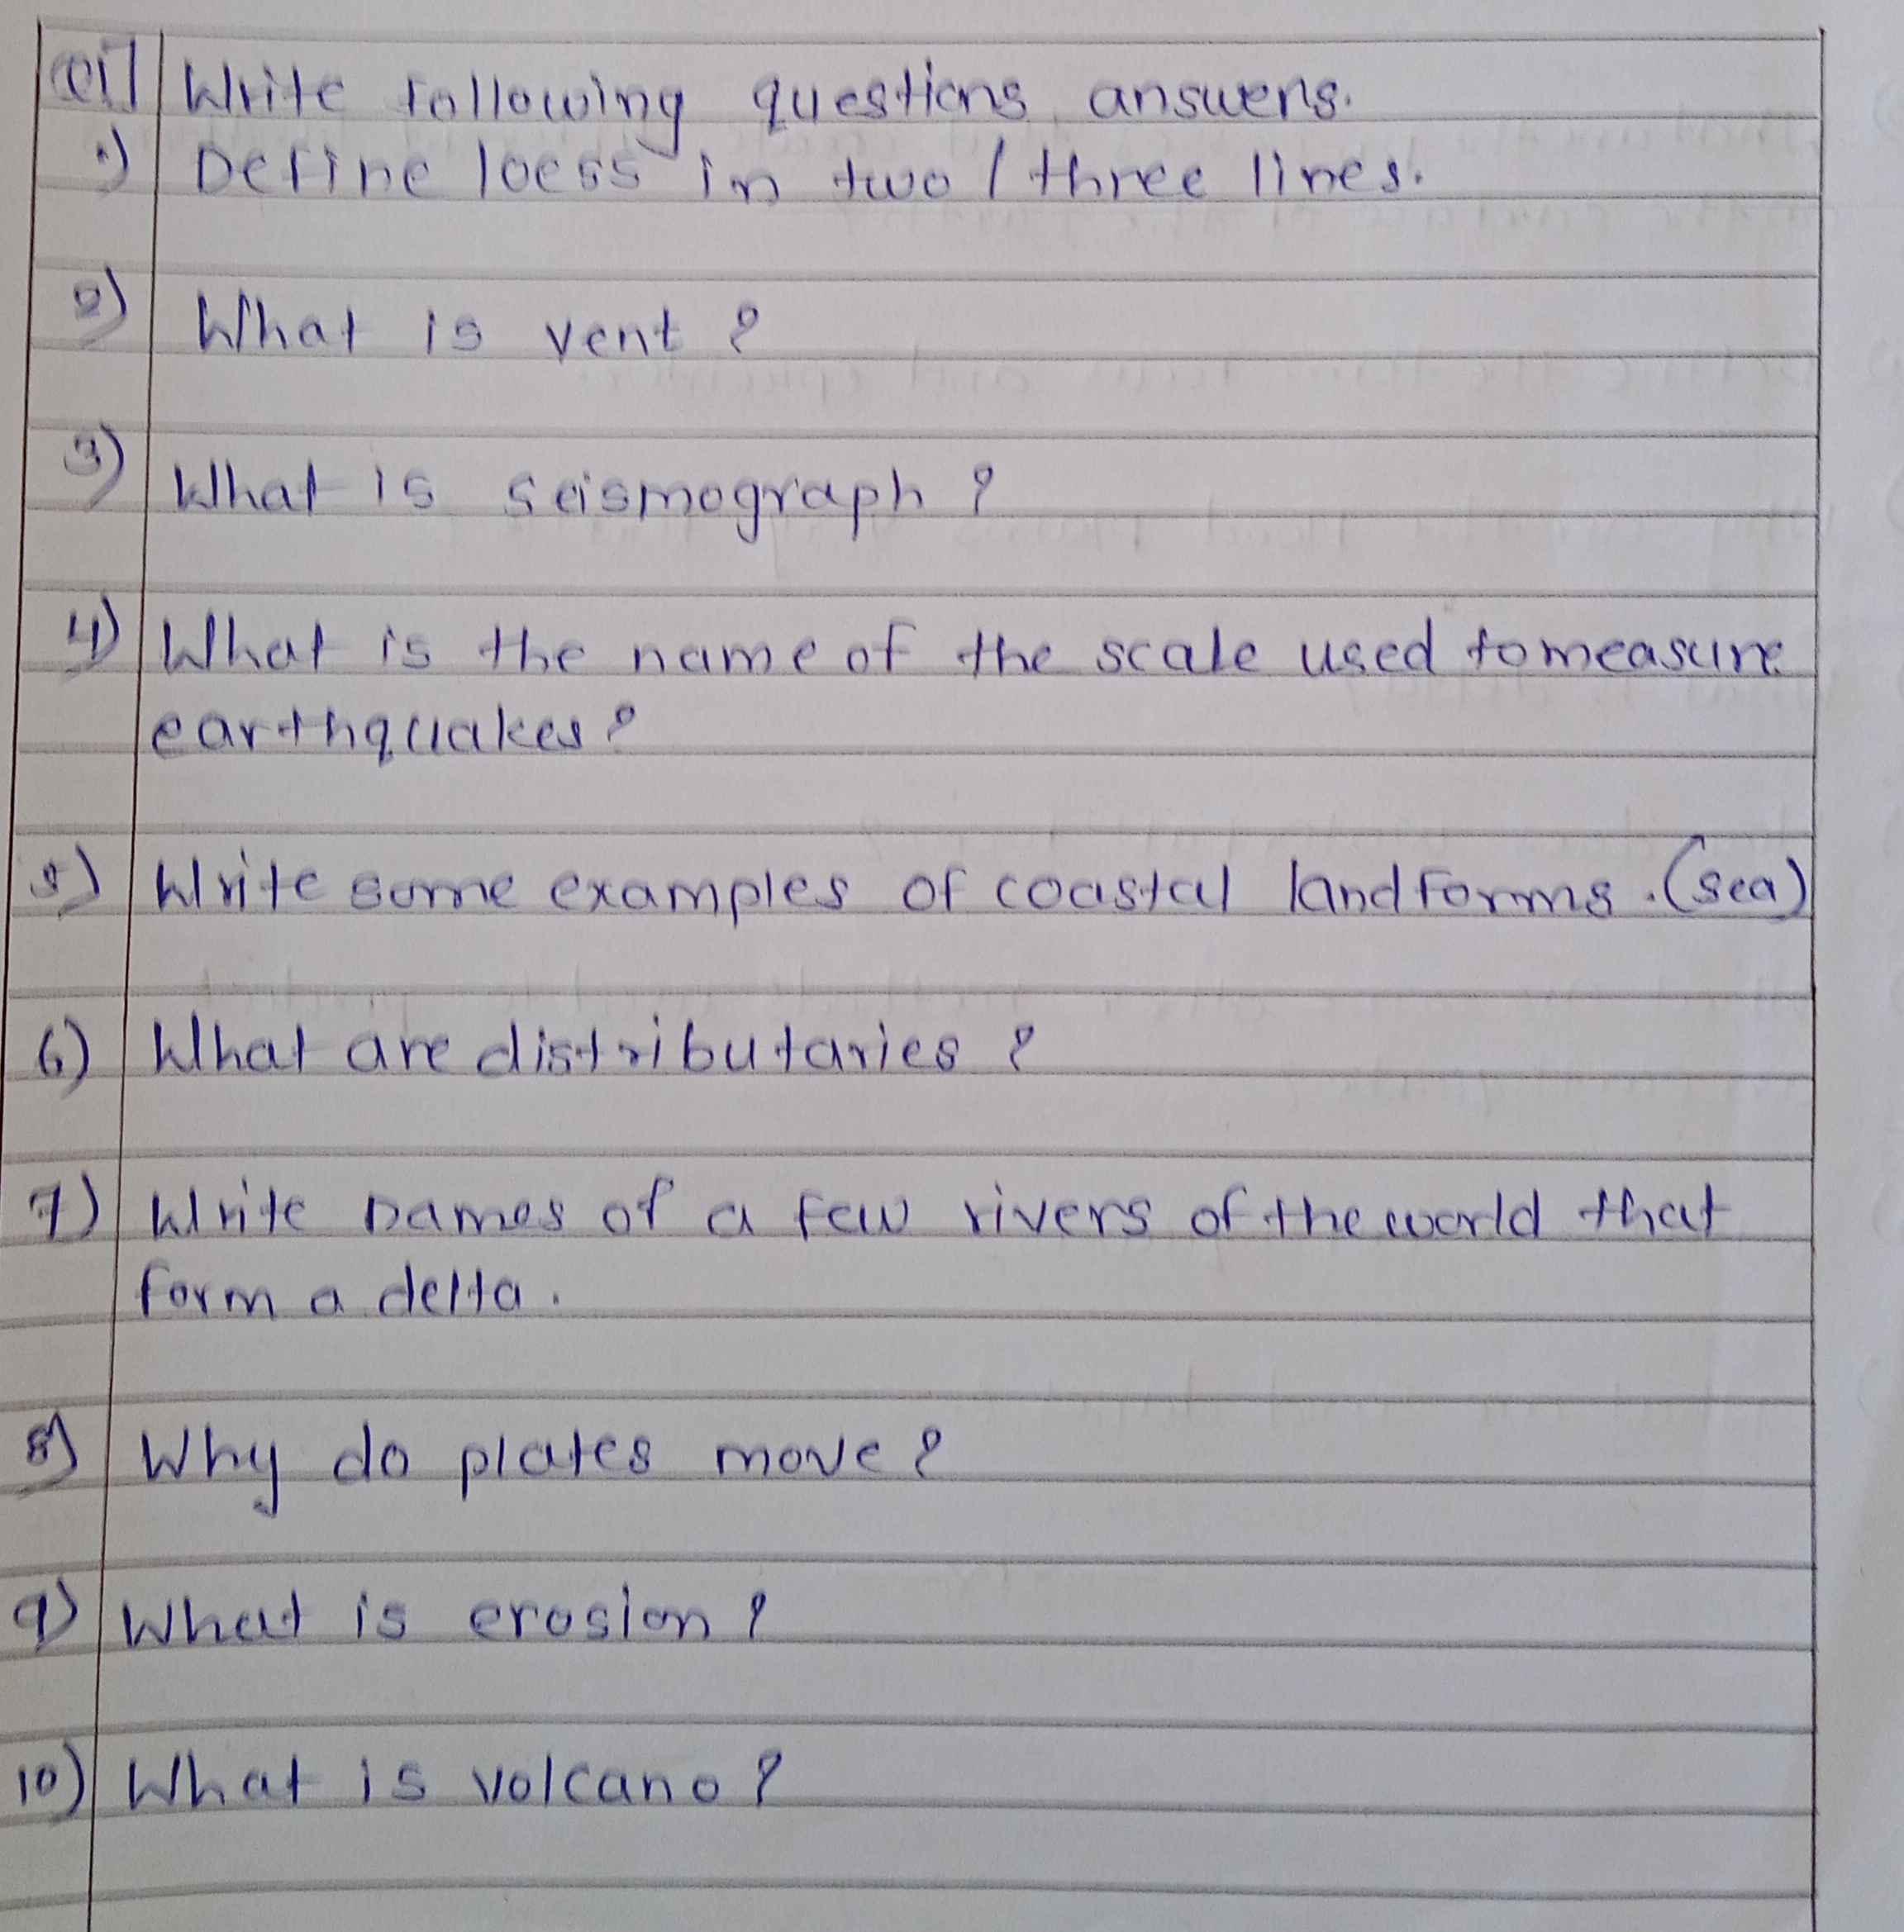 Q1] Write following questions answers.
1) Define loess in two / three lines.
2) What is vent ?
3) What is seismograph ?
4) What is the name of the scale used to measure
earthquakes ?
5) Write some examples of coastal landforms. (sea)
6) What are distributaries ?
7) Write names of a few rivers of the world that
form a delta .
8) Why do plates move ?
9) What is erosion ?
10) What is volcano ?